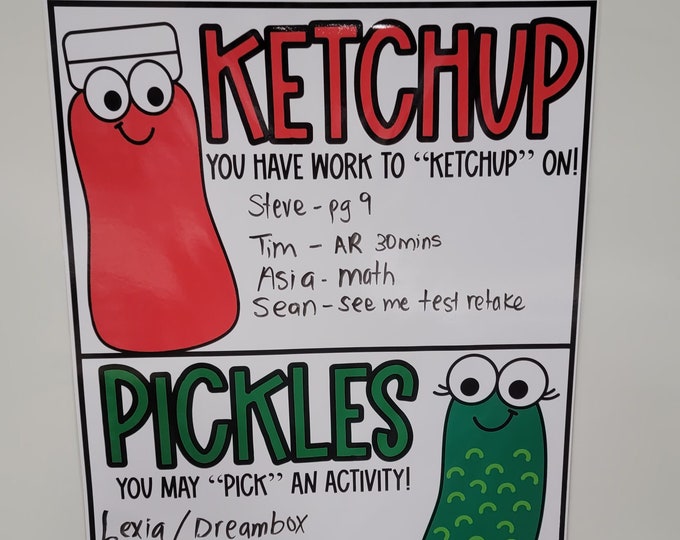 KETCHUP
YOU HAVE WORK TO "KETCHUP" ON!
Steve - pg 9
Tim - AR 30mins
Asia - math
Sean - see me test retake
PICKLES
YOU MAY "PICK" AN ACTIVITY!
Lexia / Dreambox